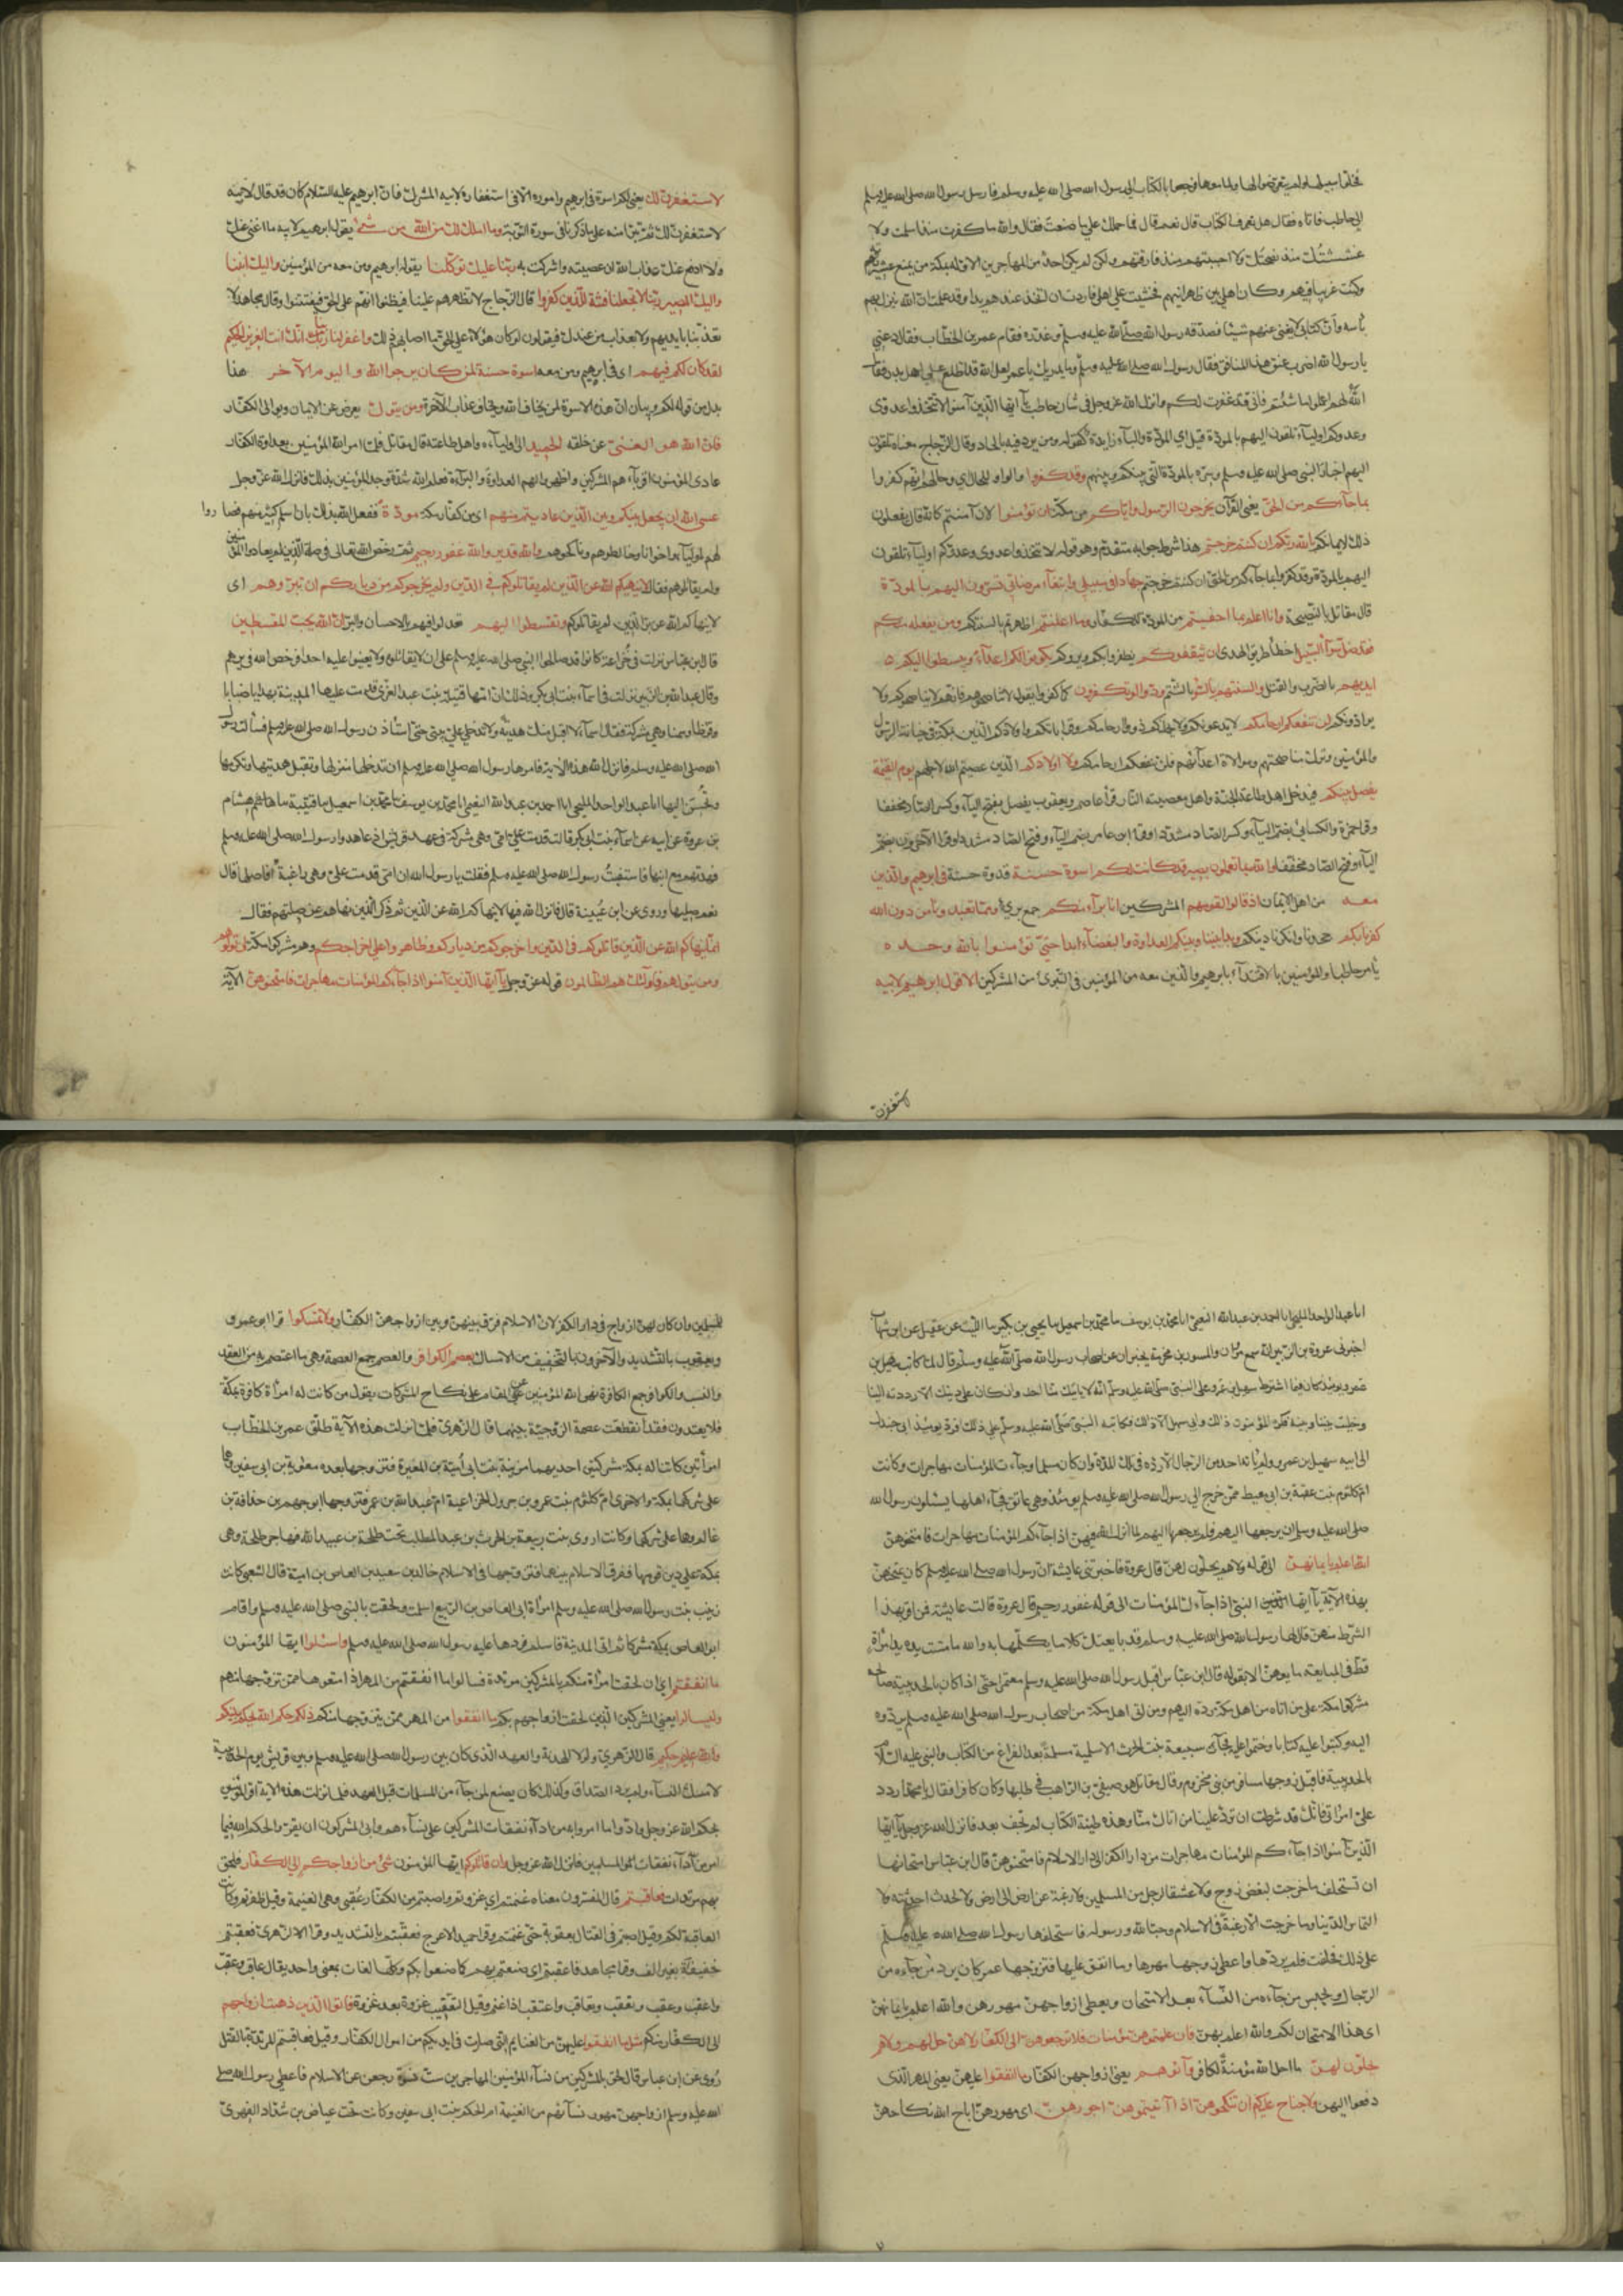 فخلوا سبيلها ولم يتعرضوا لها ولما معها ورجعوا بالكتاب الى رسول الله صلى الله عليه وسلم فارسل رسول الله صلى الله عليه وسلم
الى حاطب فاتاه فقال هل تعرف الكتاب قال نعم قال فما حملك على ما صنعت فقال والله ما كفرت منذ اسلمت ولا
غششتك منذ نصحتك ولا احببتهم منذ فارقتهم ولكن لم يكن احد من المهاجرين الا وله بمكة من يمنع عشيرته
وكنت غريبا فيهم وكان اهلي بين ظهرانيهم فخشيت على اهلي فاردت ان اتخذ عندهم يدا وقد علمت ان الله ينزل بهم
بأسه وأن كتابي لا يغني عنهم شيئا فصدقه رسول الله صلى الله عليه وسلم وعذره فقام عمر بن الخطاب فقال دعني
يا رسول الله اضرب عنق هذا المنافق فقال رسول الله صلى الله عليه وسلم وما يدريك يا عمر لعل الله قد اطلع على اهل بدر فقال
لهم اعملوا ما شئتم فاني قد غفرت لكم وانزل الله عز وجل في شأن حاطب يآ ايها الذين آمنوا لا تتخذوا عدوى
وعدوكم اوليآء تلقون اليهم بالمودة قيل اي المودة والبآء زايدة كقوله ومن يرد فيه بالحاد وقال الزجاج معناه تلقون
اليهم اخبار النبى صلى الله عليه وسلم وسره بالمودة التي بينكم وبينهم وقد كفروا الواو للحال اي وحالهم انهم كفروا
بما جآءكم من الحق يعني القرآن يخرجون الرسول واياكم من مكة ان تؤمنوا لان آمنتم كانه قال يفعلون
ذلك لايمانكم بالله ربكم ان كنتم خرجتم هذا شرط جوابه متقدم وهو قوله لا تتخذوا عدوى وعدوكم اوليآء تلقون
اليهم بالمودة وقد كفروا بما جآءكم من الحق ان كنتم خرجتم جهادا في سبيلي وابتغآء مرضاتي تسرون اليهم بالمودة
قال مقاتل بالنصيحة وانا اعلم بما اخفيتم من المودة للكفار وما اعلنتم اظهرتم بالسنتكم ومن يفعله منكم
فقد ضل سوآء السبيل اخطأ طريق الهدى ان يثقفوكم يظفروا بكم ويروكم يكونوا لكم اعدآء ويبسطوا اليكم
ايديهم بالضرب والقتل والسنتهم بالسوء بالشتم وودوا لو تكفرون كما كفروا يقول لا تناصحوهم فانهم لا يناصحونكم ولا
يوادونكم لن تنفعكم ارحامكم لا يدعونكم ولا يحملكم ذوو ارحامكم وقراباتكم واولادكم الذين بمكة الى خيانة الرسول
والمؤمنين وترك مناصحتهم وموالاة اعدآئهم فلن تنفعكم ارحامكم ولا اولادكم الذين عصيتم الله لاجلهم يوم القيمة
يفصل بينكم فيدخل اهل طاعته الجنة واهل معصيته النار قرأ عاصم ويعقوب يفصل بفتح اليآء وكسر الصاد مخففا
وقرأ حمزة والكسائي بضم اليآء وكسر الصاد مشددا وقرأ ابن عامر بضم اليآء وفتح الصاد مشددا وقرأ الآخرون بضم
اليآء وفتح الصاد مخففا والله بما تعملون بصير قد كانت لكم اسوة حسنة قدوة حسنة في ابرهيم والذين
معه من اهل الايمان اذ قالوا لقومهم المشركين انا برآء منكم جمع بري ومما تعبدون من دون الله
كفرنا بكم جحدنا وانكرنا دينكم وبدا بيننا وبينكم العداوة والبغضآء ابدا حتى تؤمنوا بالله وحده
يأمر حاطبا والمؤمنين بالاقتدآء بابرهيم والذين معه من المؤمنين في التبرى من المشركين الا قول ابرهيم لابيه
لاستغفرن
لاستغفرن لك يعني لكم اسوة في ابرهيم واموره الا في استغفاره لابيه المشرك فان ابرهيم عليه السلام كان قد قال لابيه
لاستغفرن لك ثم تبرأ منه على ما ذكرنا في سورة التوبة وما املك لك من الله من شئ يقول ابرهيم لابيه ما اغني عنك
ولا ادفع عنك عذاب الله ان عصيته واشركت به ربنا عليك توكلنا يقوله ابرهيم ومن معه من المؤمنين واليك انبنا
واليك المصير ربنا لا تجعلنا فتنة للذين كفروا قال الزجاج لا تظهرهم علينا فيظنوا انهم على الحق فيفتتنوا وقال مجاهد لا
تعذبنا بايديهم ولا بعذاب من عندك فيقولون لو كان هؤلآء على الحق ما اصابهم ذلك واغفر لنا ربنا انك انت العزيز الحكيم
لقد كان لكم فيهم اى في ابرهيم ومن معه اسوة حسنة لمن كان يرجوا الله واليوم الآخر هذا
بدل من قوله لكم وبيان ان هذه الاسوة لمن يخاف الله ويخاف عذاب الآخرة ومن يتول يعرض عن الايمان ويوالي الكفار
فان الله هو الغني عن خلقه الحميد الى اوليآءه واهل طاعته قال مقاتل فلما امر الله المؤمنين بعداوة الكفار
عادى المؤمنون اقربآءهم المشركين واظهروا لهم العداوة والبرآءة فعلم الله شدة وجد المؤمنين بذلك فانزل الله عز وجل
عسى الله ان يجعل بينكم وبين الذين عاديتم منهم اى من كفار مكة مودة ففعل الله بذلك بان اسلم كثير منهم فصاروا
لهم اوليآء واخوانا وخالطوهم وناكحوهم والله قدير والله غفور رحيم ثم رخص الله تعالى في صلة الذين لم يعادوا المؤمنين
ولم يقاتلوهم فقال لا ينهيكم الله عن الذين لم يقاتلوكم في الدين ولم يخرجوكم من دياركم ان تبروهم اى
لا ينهاكم الله عن بر الذين لم يقاتلوكم وتقسطوا اليهم تعدلوا فيهم بالاحسان والبر ان الله يحب المقسطين
قال ابن عباس نزلت في خزاعة كانوا قد صالحوا النبى صلى الله عليه وسلم على ان لا يقاتلوه ولا يعينوا عليه احدا فرخص الله في برهم
وقال عبد الله بن الزبير نزلت في اسمآء بنت ابي بكر وذلك ان امها قتيلة بنت عبد العزى قدمت عليها المدينة بهدايا ضبابا
وقرظا وسمنا وهي مشركة فقالت اسمآء لا اقبل منك هدية ولا تدخلي علي بيتي حتى استأذن رسول الله صلى الله عليه وسلم فسألت رسول
الله صلى الله عليه وسلم فانزل الله هذه الآية فامرها رسول الله صلى الله عليه وسلم ان تدخلها منزلها وتقبل هديتها وتكرمها
وتحسن اليها انا عبد الواحد المليحي انا احمد بن عبد الله النعيمي انا محمد بن يوسف نا محمد بن اسمعيل نا قتيبة نا حاتم عن هشام
بن عروة عن ابيه عن اسمآء بنت ابي بكر قالت قدمت علي امي وهي مشركة في عهد قريش اذ عاهدوا رسول الله صلى الله عليه وسلم
ومدتهم مع ابيها فاستفتيت رسول الله صلى الله عليه وسلم فقلت يا رسول الله ان امي قدمت علي وهي راغبة أفاصلها قال
نعم صليها وروى عن ابن عيينة قال فانزل الله فيها لا ينهاكم الله عن الذين ثم ذكر الذين نهاهم عن صلتهم فقال
انما ينهاكم الله عن الذين قاتلوكم في الدين واخرجوكم من دياركم وظاهروا على اخراجكم وهم مشركوا مكة ان تولوهم
ومن يتولهم فاولئك هم الظالمون قوله عز وجل يآ ايها الذين آمنوا اذا جآءكم المؤمنات مهاجرات فامتحنوهن الآية
انا عبد الواحد المليحي انا احمد بن عبد الله النعيمي انا محمد بن يوسف نا محمد بن اسمعيل نا يحيى بن بكير نا الليث عن عقيل عن ابن شهاب
اخبرني عروة بن الزبير انه سمع مروان والمسور بن مخرمة يخبران عن اصحاب رسول الله صلى الله عليه وسلم قال لما كاتب سهيل بن
عمرو يومئذ كان فيما اشترط سهيل بن عمرو على النبى صلى الله عليه وسلم انه لا ياتيك منا احد وان كان على دينك الا رددته الينا
وخليت بيننا وبينه فكره المؤمنون ذلك وابى سهيل الا ذلك فكاتبه النبى صلى الله عليه وسلم على ذلك فرد يومئذ ابى جندل
الى ابيه سهيل بن عمرو ولم ياته احد من الرجال الا رده في تلك المدة وان كان مسلما وجآءت المؤمنات مهاجرات وكانت
ام كلثوم بنت عقبة بن ابي معيط ممن خرج الى رسول الله صلى الله عليه وسلم يومئذ وهي عاتق فجآء اهلها يسئلون رسول الله
صلى الله عليه وسلم ان يرجعها اليهم فلم يرجعها اليهم لما انزل الله فيهن اذا جآءكم المؤمنات مهاجرات فامتحنوهن
الله اعلم بايمانهن الى قوله ولا هم يحلون لهن قال عروة فاخبرتني عايشة ان رسول الله صلى الله عليه وسلم كان يمتحنهن
بهذه الآية يآ ايها النبى اذا جآءك المؤمنات الى قوله غفور رحيم قال عروة قالت عايشة فمن اقر بهذا
الشرط منهن قال لها رسول الله صلى الله عليه وسلم قد بايعتك كلاما يكلمها به والله ما مست يده يد امرأة
قط في المبايعة ما بايعهن الا بقوله قال ابن عباس اقبل رسول الله صلى الله عليه وسلم معتمرا حتى اذا كان بالحديبية صالحه
مشركوا مكة على من اتاه من اهل مكة رده اليهم ومن اتى اهل مكة من اصحاب رسول الله صلى الله عليه وسلم لم يردوه
اليه وكتبوا عليه كتابا وختموا عليه فجآءت سبيعة بنت الحرث الاسلمية مسلمة بعد الفراغ من الكتاب والنبى عليه السلام
بالحديبية فاقبل زوجها مسافر من بني مخزوم وقال مقاتل هو صيفي بن الراهب في طلبها وكان كافرا فقال يا محمد اردد
علي امرأتي فانك قد شرطت ان ترد علينا من اتاك منا وهذه طينة الكتاب لم تجف بعد فانزل الله عز وجل يآ ايها
الذين آمنوا اذا جآءكم المؤمنات مهاجرات من دار الكفر الى دار الاسلام فامتحنوهن قال ابن عباس امتحانها
ان تستحلف ما خرجت لبغض زوج ولا عشقا لرجل من المسلمين ولا رغبة عن ارض الى ارض ولا لحدث احدثته ولا
التماس الدنيا وما خرجت الا رغبة في الاسلام وحبا لله ورسوله فاستحلفها رسول الله صلى الله عليه وسلم
على ذلك فحلفت فلم يردها واعطى زوجها مهرها وما انفق عليها فتزوجها عمر كان يرد من جآءه من
الرجال ويحبس من جآءه من النسآء بعد الامتحان ويعطي ازواجهن مهورهن والله اعلم بايمانهن
اى هذا الامتحان لكم والله اعلم بهن فان علمتموهن مؤمنات فلا ترجعوهن الى الكفار لا هن حل لهم ولا هم
يحلون لهن ما احل الله مؤمنة لكافر وآتوهم يعني ازواجهن الكفار ما انفقوا عليهن يعني المهر الذى
دفعوا اليهن ولا جناح عليكم ان تنكحوهن اذا آتيتموهن اجورهن اى مهورهن اباح الله نكاحهن
للمسلمين وان كان لهن ازواج في دار الكفر لان الاسلام فرق بينهن وبين ازواجهن الكفار ولا تمسكوا قرا ابو عمرو
ويعقوب بالتشديد والآخرون بالتخفيف من الامساك بعصم الكوافر والعصم جمع العصمة وهي ما اعتصم به من العقد
والنسب والكوافر جمع الكافرة نهى الله المؤمنين عن المقام على نكاح المشركات يقول من كانت له امرأة كافرة بمكة
فلا يعتدون فقد انقطعت عصمة الزوجية بينهما قال الزهرى فلما نزلت هذه الآية طلق عمر بن الخطاب
امرأتين كانتا له بمكة مشركتين احديهما بنت ابي امية بن المغيرة فتزوجها بعده معوية بن ابي سفين وهما
على شركهما بمكة والاخرى ام كلثوم بنت عمرو بن جرول الخزاعية ام عبد الله بن عمر فتزوجها ابو جهم بن حذافة بن
غانم وهما على شركهما وكانت اروى بنت ربيعة بن الحرث بن عبد المطلب تحت طلحة بن عبيد الله فهاجر طلحة وهي
بمكة على دين قومها ففرق الاسلام بينهما فتزوجها في الاسلام خالد بن سعيد بن العاص بن امية قال الشعبى كانت
زينب بنت رسول الله صلى الله عليه وسلم امرأة ابى العاص بن الربيع اسلمت ولحقت بالنبى صلى الله عليه وسلم واقام
ابو العاص بمكة مشركا ثم اتى المدينة فاسلم فردها عليه رسول الله صلى الله عليه وسلم واسئلوا ايها المؤمنون
ما انفقتم اى ان لحقت امرأة منكم بالمشركين مرتدة فسالوا ما انفقتم من المهر اذا منعوها ممن تزوجها منهم
وليسالوا يعني المشركين الذين لحقت ازواجهم بكم ما انفقوا من المهر ممن تزوجها منكم ذلكم حكم الله يحكم بينكم
والله عليم حكيم قال الزهري ولولا الهدنة والعهد الذى كان بين رسول الله صلى الله عليه وسلم وبين قريش يوم الحديبية
لامسك النسآء ولم يرد الصداق وكذلك كان يصنع بمن جآءه من المسلمات قبل العهد فلما نزلت هذه الآية اقر المؤمنون
بحكم الله عز وجل وادوا ما امروا به من ادآء نفقات المشركين على نسآءهم وابى المشركون ان يقروا لحكم الله فيما
امر من ادآء نفقات المسلمين فانزل الله عز وجل وان فاتكم ايها المؤمنون شئ من ازواجكم الى الكفار فلحق
بهم مرتدات فعاقبتم قال المفسرون معناه غنمتم اى غزوتم واصبتم من الكفار عقبى وهي الغنيمة وقيل ظفرتم وكانت
العاقبة لكم وقيل اصبتم في القتال بعقوبة حتى غنمتم وقرأ حميد الاعرج فعقبتم بالتشديد وقرا الزهرى فعقبتم
خفيفة بغير الف وقرأ مجاهد فاعقبتم اى صنعتم بهم كما صنعوا بكم وكلها لغات بمعنى واحد يقال عاقب وعقب
واعقب وعقب وتعقب وتعاقب واعتقب اذا غنم وقيل التعقيب غزوة بعد غزوة فآتوا الذين ذهبت ازواجهم
الى الكفار منكم مثل ما انفقوا عليهن من الغنايم التى صارت في ايديكم من اموال الكفار وقيل فعاقبتم المرتدة بالقتل
روى عن ابن عباس قال لحق بالمشركين من نسآء المؤمنين المهاجرين ست نسوة رجعن عن الاسلام فاعطى رسول الله صلى
الله عليه وسلم ازواجهن مهور نسآئهم من الغنيمة ام الحكم بنت ابى سفين وكانت تحت عياض بن شداد الفهرى